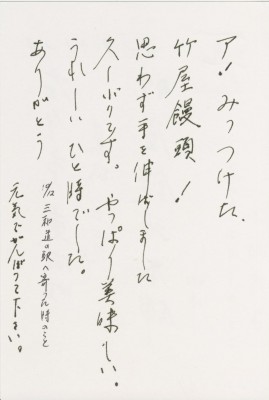 ア! みっつけた.
竹屋饅頭!
思わず手を伸ばしました
久しぶりです。やっぱり美味しい。
うれしいひと時でした。
ありがとう
三和道の駅へ寄った時のこと
元気でがんばって下さい。